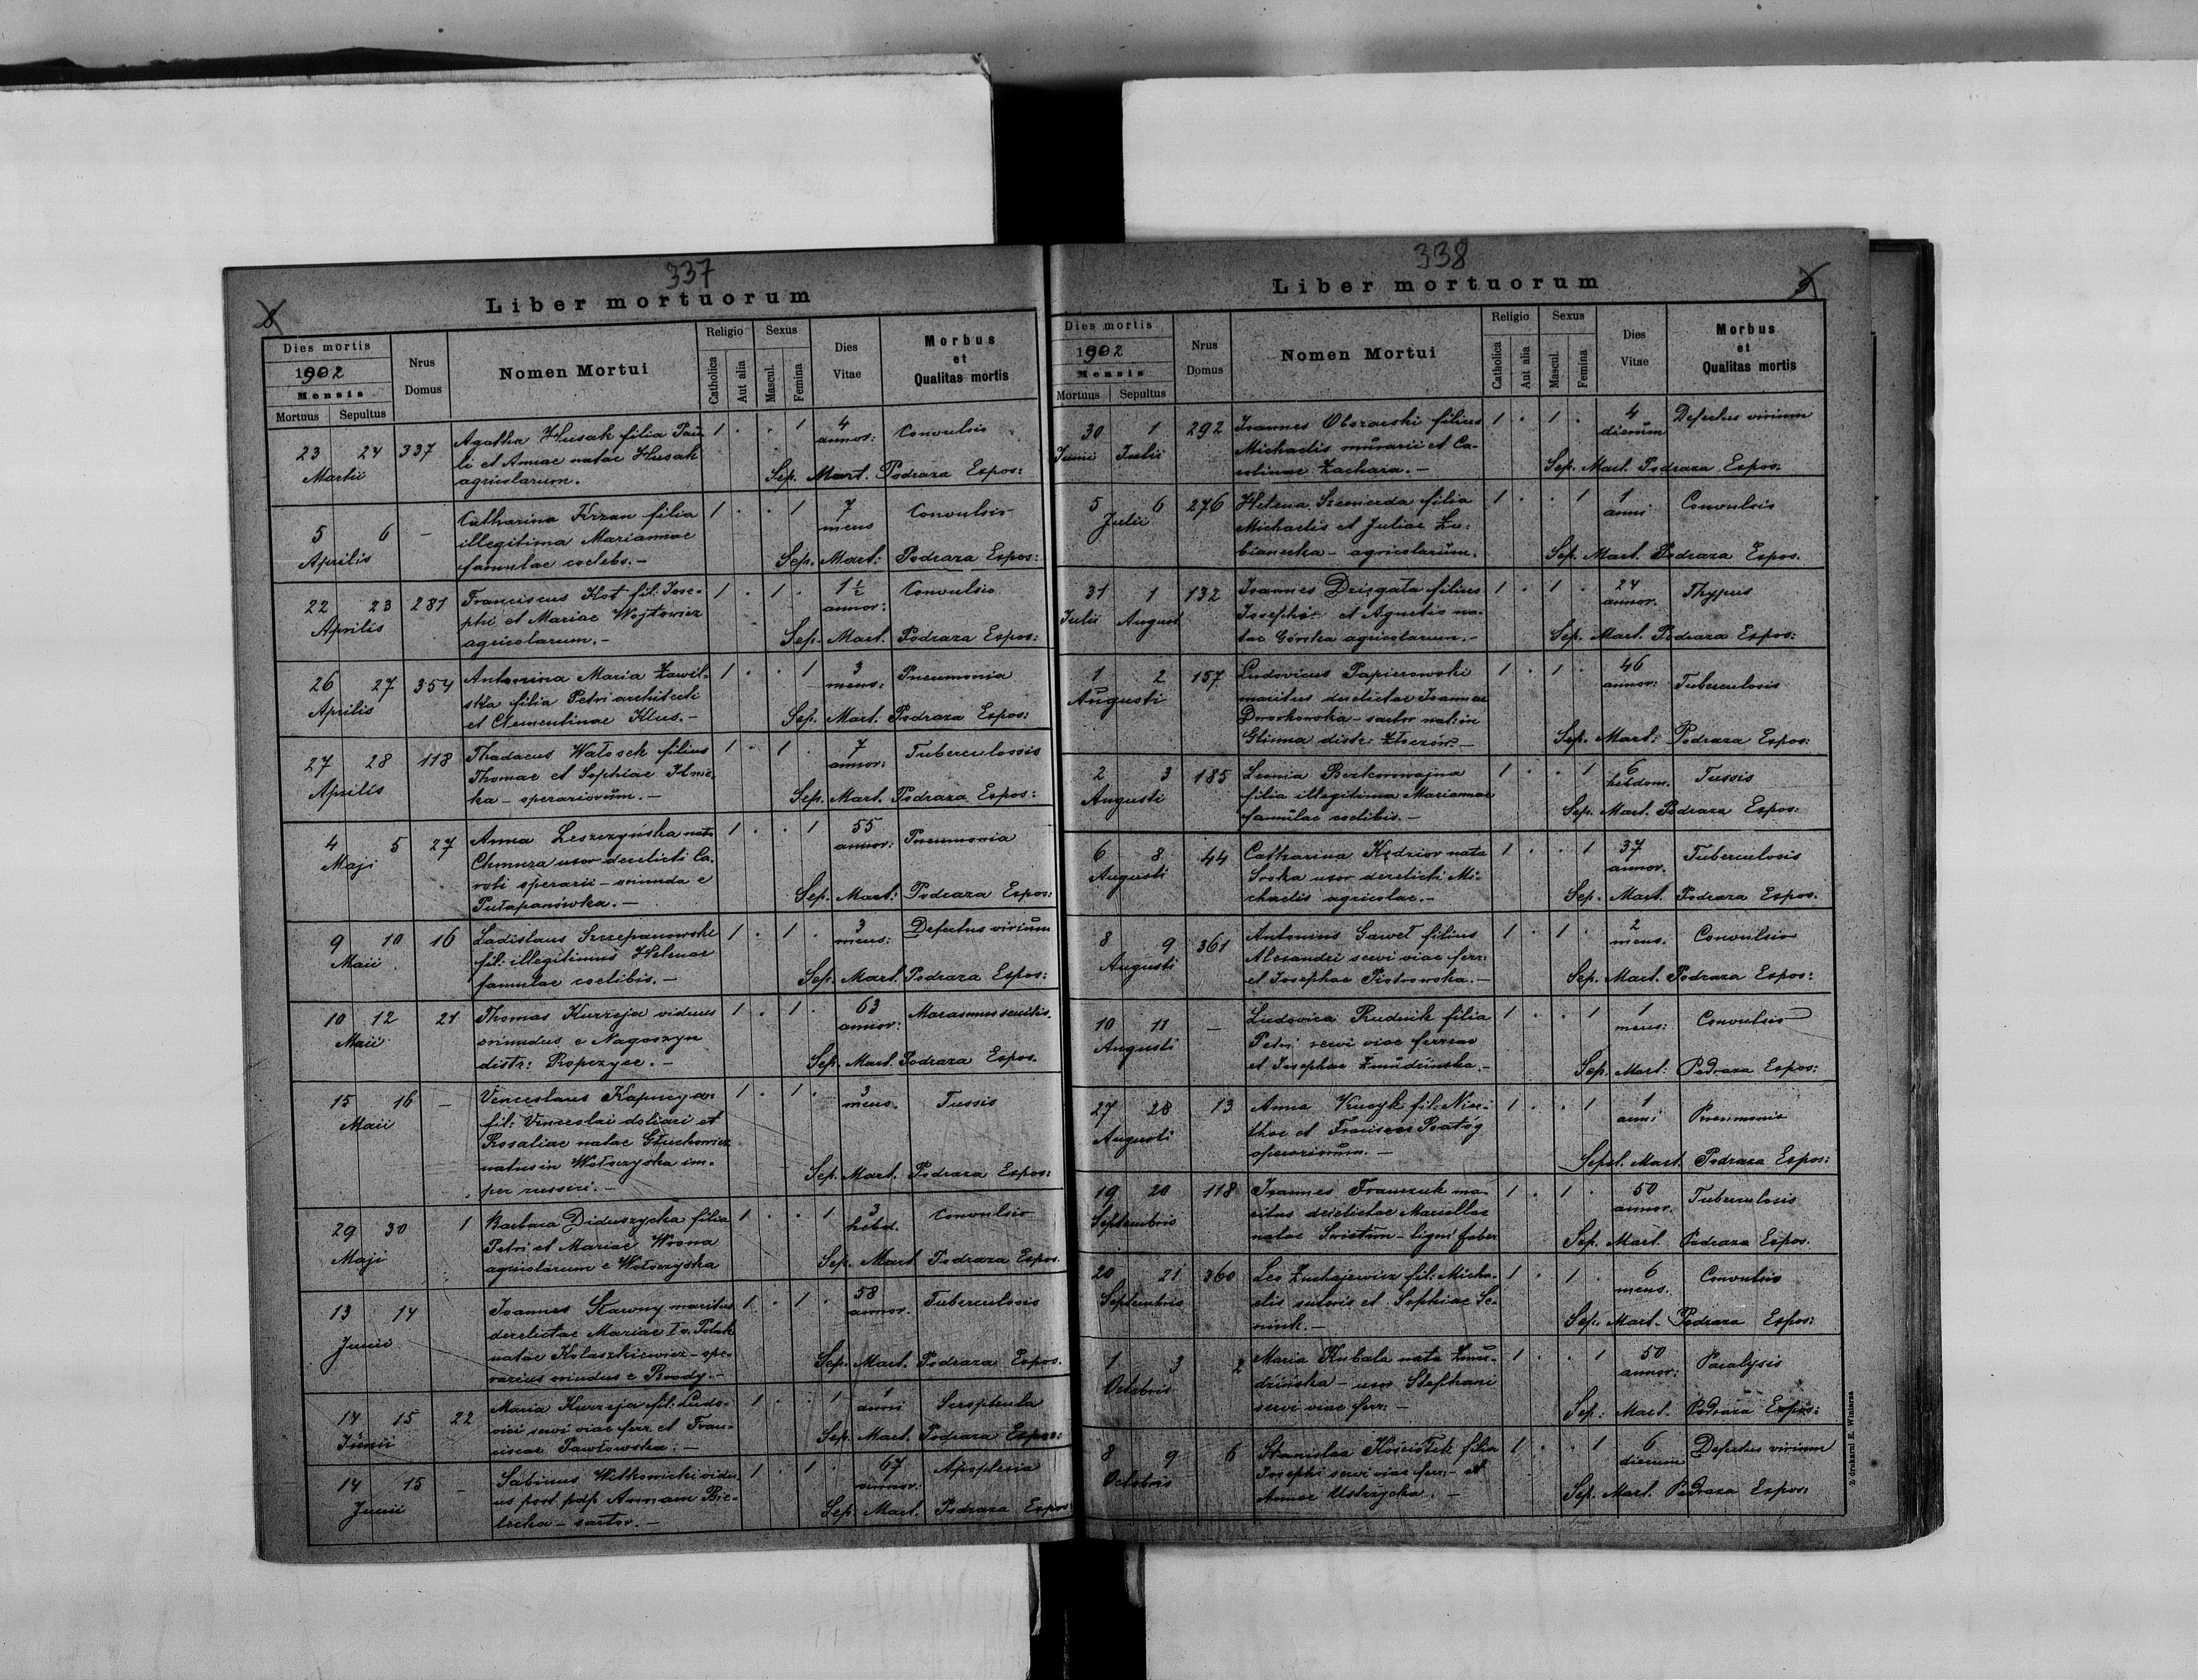 337
Liber mortuorum
8
Dies mortis
1902
Mensis
Mortuus Sepultus
Nrus Domus
Nomen Mortui
Religio
Catholica
Aut alia
Sexus
Mascul.
Femina
Dies Vitae
Morbus et Qualitas mortis
23 24 337 Agatha Husak filia Pau- 1 . . 1 4 annor: Convulsio
Martii li et Annae natae Husak
agricolarum. Sep. Mart. Podraza Expos:
5 6 - Catharina Krzan filia 1 . . 1 7 mens Convulsio
Aprilis illegitima Mariannae
famulae coelebs. - Sep. Mart: Podraza Expos:
22 23 281 Franciscus Kot fil: Jose- 1 . 1 . 1½ annor: Convulsio
Aprilis phi et Mariae Wojtowicz
agricolarum. - Sep. Mart. Podraza Expos:
26 27 354 Antonina Maria Zawil- 1 . . 1 3 mens: Pneumonia
Aprilis ska filia Petri architecti
et Clementinae Klus. - Sep. Mart: Podraza Expos:
27 28 118 Thadaeus Watosek filius 1 . 1 . 7 annor: Tuberculossis
Aprilis Thomae et Sophiae
ka - operariorum. - Sep. Mart. Podraza Expos:
4 5 27 Anna Leszczyńska nata 1 . . 1 55 annor: Pneumonia
Maji Chmura uxor derelicti Ca-
roli operarii - oriunda e
Putapanówka. - Sep. Mart: Podraza Expos:
9 10 16 Ladislaus Szczepanowski 1 . 1 . 3 mens: Defectus virium
Maii fil: illegitimus Helenae
famulae coelibis. - Sep. Mart. Podraza Expos:
10 12 21 Thomas Kurzeja viduus 1 . 1 . 63 annor: Marasmus senilis.
Maii oriundus e Nagoszyn
distr: Ropczyce. - Sep. Mart. Podraza Expos.
15 16 - Venceslaus 1 . 1 . 3 mens. Tussis
Maii fil: Venceslai doliari et
Rosaliae natae Głuchowicz
natus in Wołoczyska im-
per russici. - Sep. Mart. Podraza Expos:
29 30 1 Barbara Diduszycka filia 1 . . 1 3 hebd. Convulsio
Maji Petri et Mariae Wrona
agricolarum e Wołoczyska Sep. Mart. Podraza Expos.
13 14 Joannes Stawny maritus 1 . 1 . 58 annor. Tuberculosis
Junii derelictae Mariae I v. Polak
natae Kolaszkiewicz - ope-
rarius oriundus e Brody. - Sep. Mart. Podraza Expos.
14 15 22 Maria Kurzeja fil: Ludo- 1 . . 1 1 anni Scrophula
Junii vici servi viae ferr. et Fran-
ciscae Pawłowska. - Sep. Mart. Podraza Expos:
14 15 - Sabinus Witkowicki vidu- 1 . 1 . 67 annor. Apoplexia
Junii us post pdf. Annam Bie-
lecka - sartor. - Sep. Mart. Podraza Expos:
338
Liber mortuorum
9
Dies mortis
1902
Mensis
Mortuus Sepultus
Nrus Domus
Nomen Mortui
Religio
Catholica
Aut alia
Sexus
Mascul.
Femina
Dies Vitae
Morbus et Qualitas mortis
30 1 292 Joannes Obszarski filius 1 . 1 . 4 dierum Defectus virium
Junii Julii Michaelis murarii et Ca-
rolinae Zacharia. - Sep. Mart. Podraza Expos.
5 6 276 Helena Szemerda filia 1 . . 1 1 anni Convulsio
Julii Michaelis et Juliae Zu-
bianecka - agricolarum. Sep. Mart. Podraza Expos.
31 1 132 Joannes Dziegata filius 1 . 1 . 24 annor. Thypus
Julii August Josephi et Agnetis na-
tae Górska agricolarum. - Sep. Mart. Podraza Expos:
1 2 157 Ludovicus Papierowski 1 . 1 . 46 annor: Tuberculosis
Augusti maritus derelictae Joannae
Dworkowska - sartor nat: in
Glinna distr. Złoczów. - Sep. Mart: Podraza Expos:
2 3 185 Leonia Bezkorowajna 1 . . 1 6 hebdom. Tussis
Augusti filia illegitima Mariannae
famulae coelibis. - Sep. Mart. Podraza Expos:
6 8 44 Catharina Kędzior nata 1 . . 1 37 annor. Tuberculosis
Augusti Sroka uxor derelicti Mi-
chaelis agricolae. - Sep. Mart. Podraza Expos.
8 9 361 Antonius Gaweł filius 1 . 1 . 2 mens. Convulsio
Augusti Alexandri servi viae ferr:
et Josephae Piotrowska. - Sep. Mart. Podraza Expos:
10 11 - Ludovica Rudnik filia 1 . . 1 1 mens: Convulsio
Augusti Petri servi viae ferreae
et Josephae Żmudzińska. - Sep. Mart: Podraza Expos:
27 28 13 Anna Kucyk fil: Nice- 1 . . 1 1 anni Pneumonia
Augusti thae et Franciscae
operariorum. - Sept. Mart. Podraza Expos:
19 20 118 Joannes Franczuk ma- 1 . 1 . 50 annor. Tuberculosis
Septembris ritus derelictae Marcellae
natae Swistun - ligni faber Sep. Mart. Podraza Expos.
20 21 360 Leo Zuchajewicz fil: Micha- 1 . 1 . 6 mens. Convulsio
Septembris elis sutoris et Sophiae Se-
niuk. - Sep. Mart. Podraza Expos:
1 3 2 Maria Kubala nata Żmu- 1 . . 1 50 annor: Paralysis
Octobris dzińska - uxor Stephani
servi viae ferr: - Sep: Mart. Podraza Expos:
8 9 6 Stanislaa Kościółek filia 1 . . 1 6 dierum Defectus virium
Octobris Josephi servi viae ferr: - et
Annae Ustrzycka. - Sep. Mart. Podraza Expos:
Z drukarni E. Wintarza